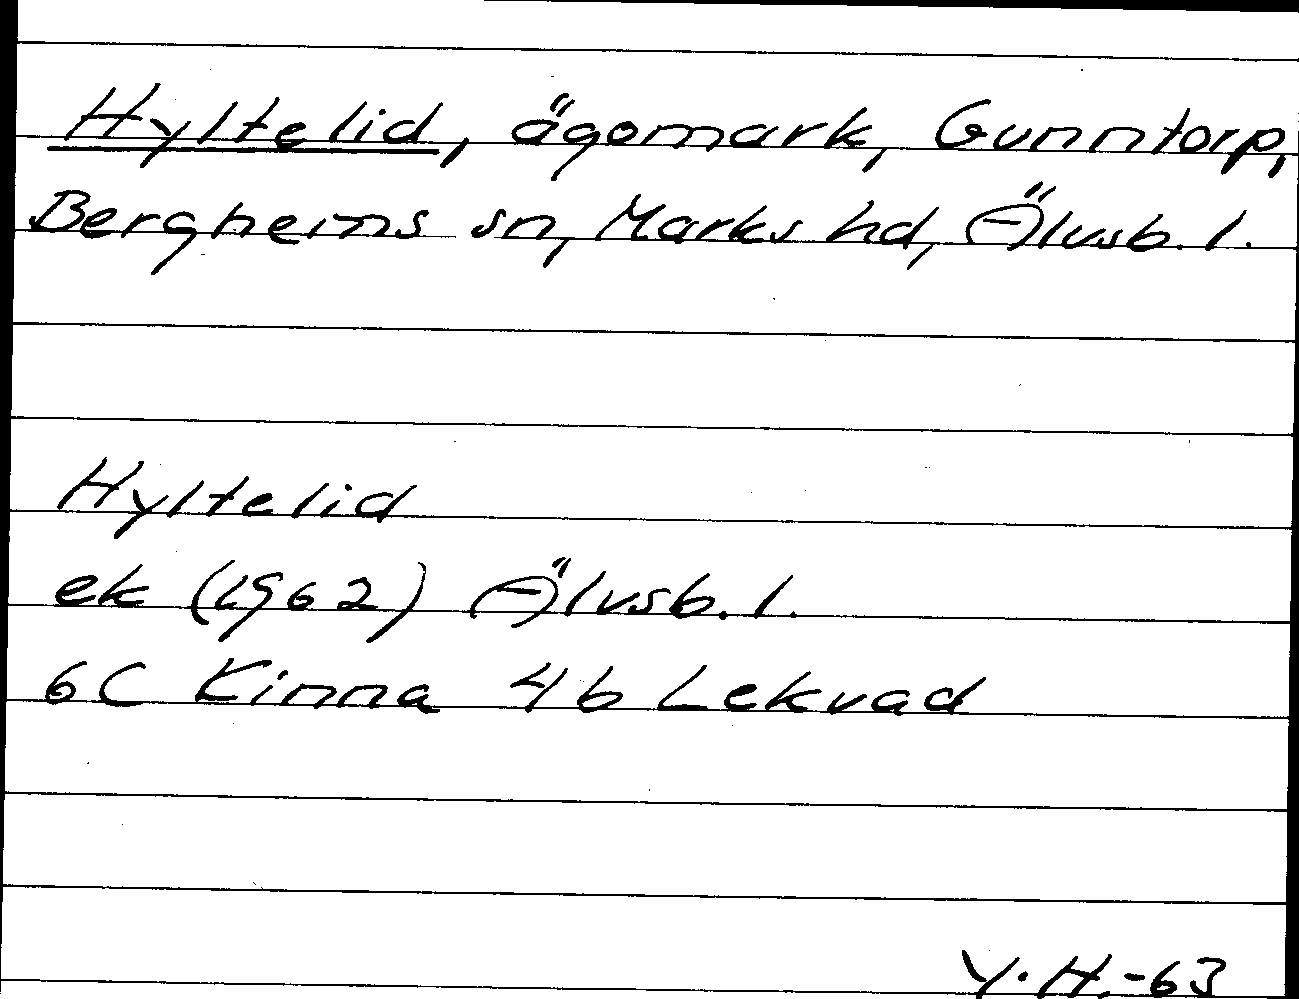 Hyltelid, ägomark, Gunntorp,
Berghems sn, Marks hd, Älvsb. l.
Hyltelid
ek (1962) Älvsb. l.
6C Kinna 4b Lekvad
Y.H.-63